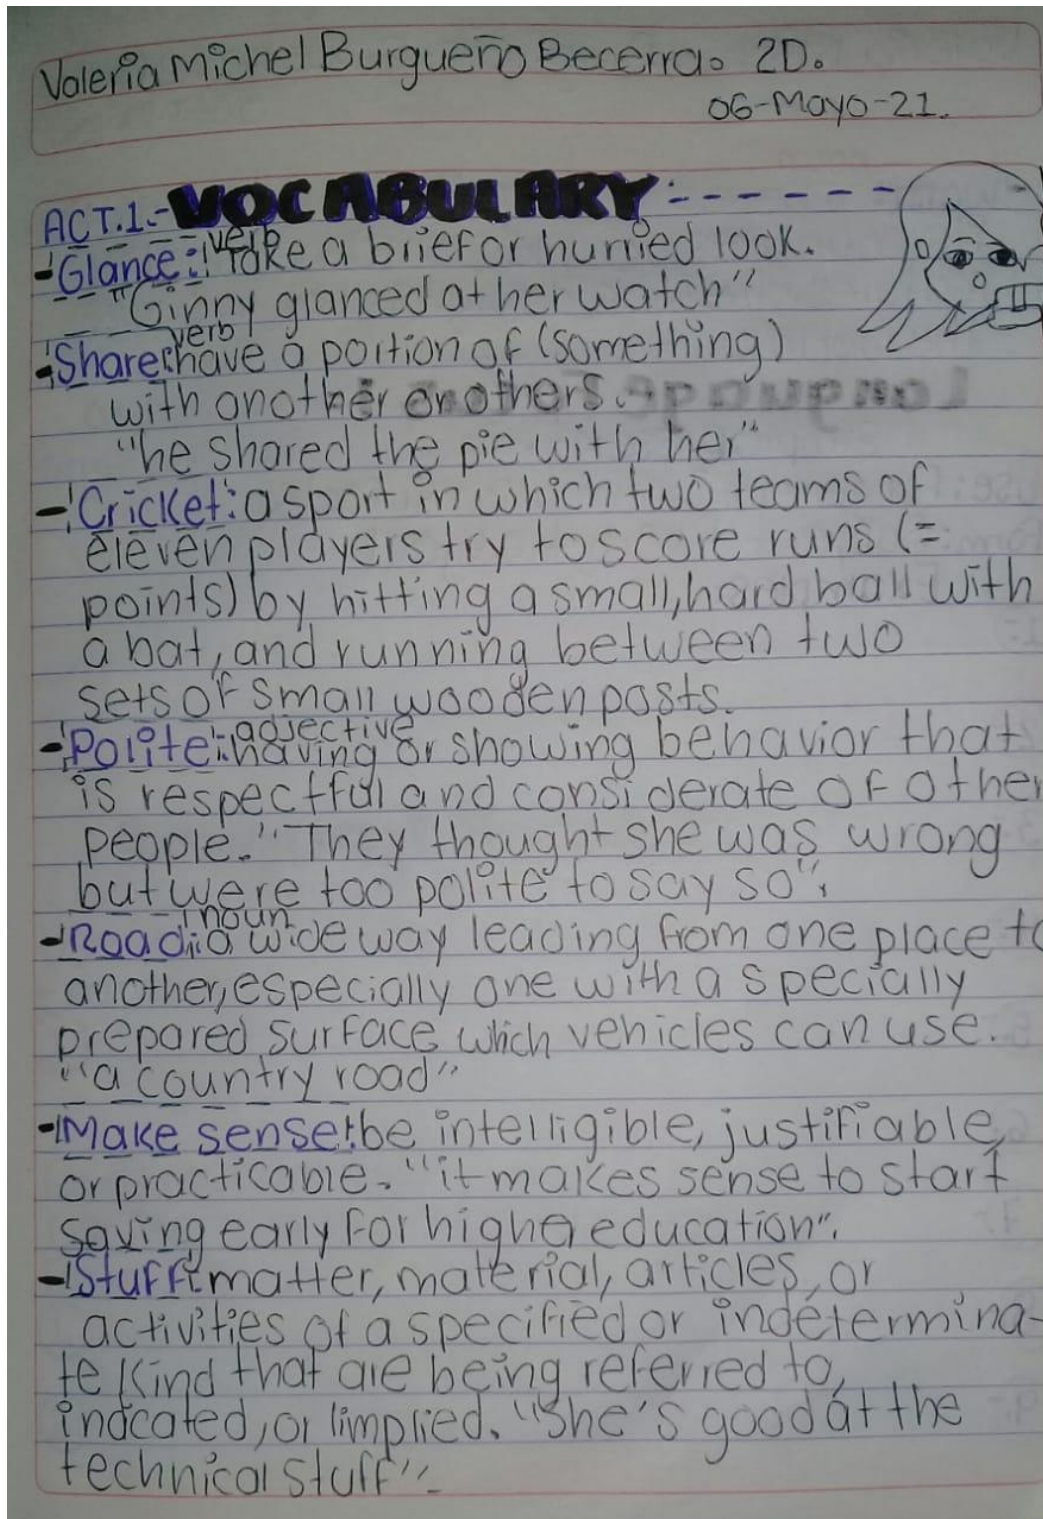 Valeria Michel Burgueño Becerra. 2D.
06-Mayo-21.
ACT.1.- VOCABULARY:------
verb
-Glance: Take a brief or hurried look.
"Ginny glanced at her watch"
verb
-Share: have a portion of (something)
with another or others.
"he shared the pie with her"
-Cricket: a sport in which two teams of
eleven players try to score runs (=
points) by hitting a small, hard ball with
a bat, and running between two
sets of small wooden posts.
adjective
-Polite: having or showing behavior that
is respectful and considerate of other
people. "They thought she was wrong
but were too polite to say so".
noun
-Road: a wide way leading from one place to
another, especially one with a specially
prepared surface which vehicles can use.
"a country road"
-Make sense: be intelligible, justifiable,
or practicable. "it makes sense to start
saving early for higher education".
-Stuff: matter, material, articles, or
activities of a specified or indetermina-
te kind that are being referred to,
indcated, or implied. "She's good at the
technical stuff".